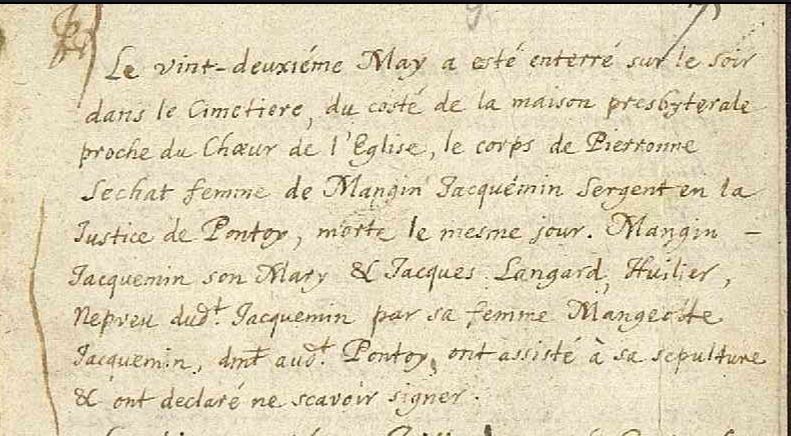 Le vint-deuxiéme May a esté enterré sur le soir
dans le Cimetiere, du costé de la maison presbyterale
proche du Chœur de l'Eglise, le corps de Pierronne
Sechat femme de Mangin Jacquémin Sergent en la
Justice de Pontoy, morte le mesme jour. Mangin -
Jacquemin son Mary & Jacques Langard, Huilier,
Nepveu dud.t Jacquemin par sa femme Mangeotte
Jacquemin, dmt aud.t Pontoy, ont assisté à sa sepulture
& ont declaré ne scavoir signer.